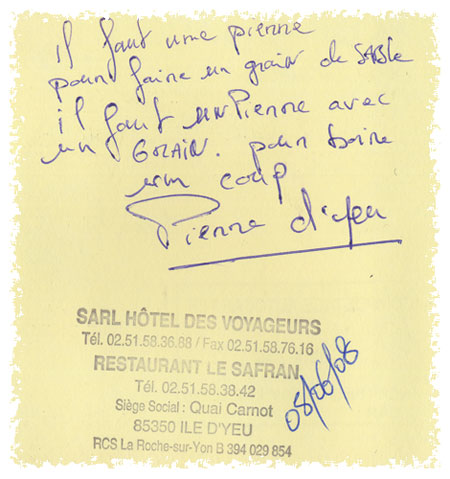 il faut une pierre
pour faire un grain de SABLE
il faut UN Pierre avec
un GRAIN. pour boire
un coup
Pierre d'yeu
SARL HÔTEL DES VOYAGEURS
Tél. 02.51.58.36.88 / Fax 02.51.58.76.16
RESTAURANT LE SAFRAN
Tél. 02.51.58.38.42
Siège Social : Quai Carnot
85350 ILE D'YEU
RCS La Roche-sur-Yon B 394 029 854
08/06/08